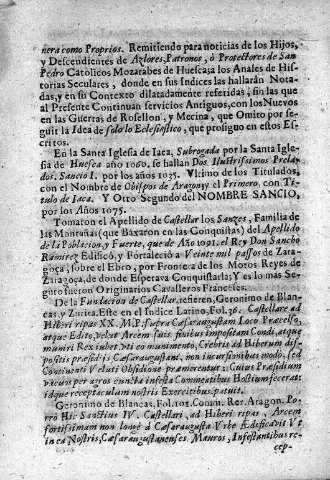 nera como Proprios. Remitiendo para noticias de los Hijos,
y Descendientes de Azlores, Patronos, ò Protectores de San
Pedro Catolicos Mozarabes de Huesca, à los Anales de His-
torias Seculares, donde en sus Indices las hallaràn Nota-
das, y en su Contexto dilatadamente referidas, sin las que
al Presente Continuan servicios Antiguos, con los Nuevos
en las Guerras de Rosellon, y Mecina, que Omito por se-
guir la Idea de solo lo Eclesiastico, que prosigo en estos Es-
critos.
En la Santa Iglesia de Iaca, Subrogada por la Santa Igle-
sia de Huesca año 1060, se hallan Dos Ilustrissimos Prela-
dos. Sancio I. por los años 1035. Vltimo de los Titulados,
con el Nombre de Obispos de Aragon y el Primero, con Ti-
tulo de Iaca. Y Otro Segundo del NOMBRE SANCIO,
por los Años 1075.
Tomaron el Apellido de Castellar los Sanzes, Familia de
las Montañas (que Báxaron en las Conquistas) del Apellido
de la Poblacion, y Fuerte, que de Año 1091. el Rey Don Sancho
Ramirez Edificó, y Fortaleciò a Veinte mil passos de Zara-
goça, sobre el Ebro, por Frontera de los Moros Reyes de
Zaragoça, de donde Esperava Conquistarla; Y es lo mas Se-
guro fueron Originarios Cavalleros Franceses.
De la Fundacion de Castellar, refieren, Geronimo de Blan-
cas, y Zurita. Este en el Indice Latino, Fol. 36. Castellare ad
Hiberi ripas XX. M. P. supra Cæsaraugustam Loco Præcelso,
atque Edito, Velut Arcem suis finibus impositam Condi, atque
muniri Rex iubet, ut eo munimento, Crebris ad Hiberum dis-
positis præsidijs Cæsaraugustani, non incursionibus modo, sed
Continenti Veluti Obsidione præmerentur: Cuius Præsidium
vicum per agros cuncta infesta Commeatibus Hostium fecerat:
idque receptaculum nostris Exercitibus patuit.
Geronimo de Blancas, Fol. 101. Comm. Rer. Aragon. Por-
rò Hic Sanctius IV. Castellari, ad Hiberi ripas, Arcem
fortissimam non longè à Cæsaraugusta Vrbe Edificavit Vt
in ea Nostris, Cæsaraugustanenses Mauros, Infestantibus re-
cep-